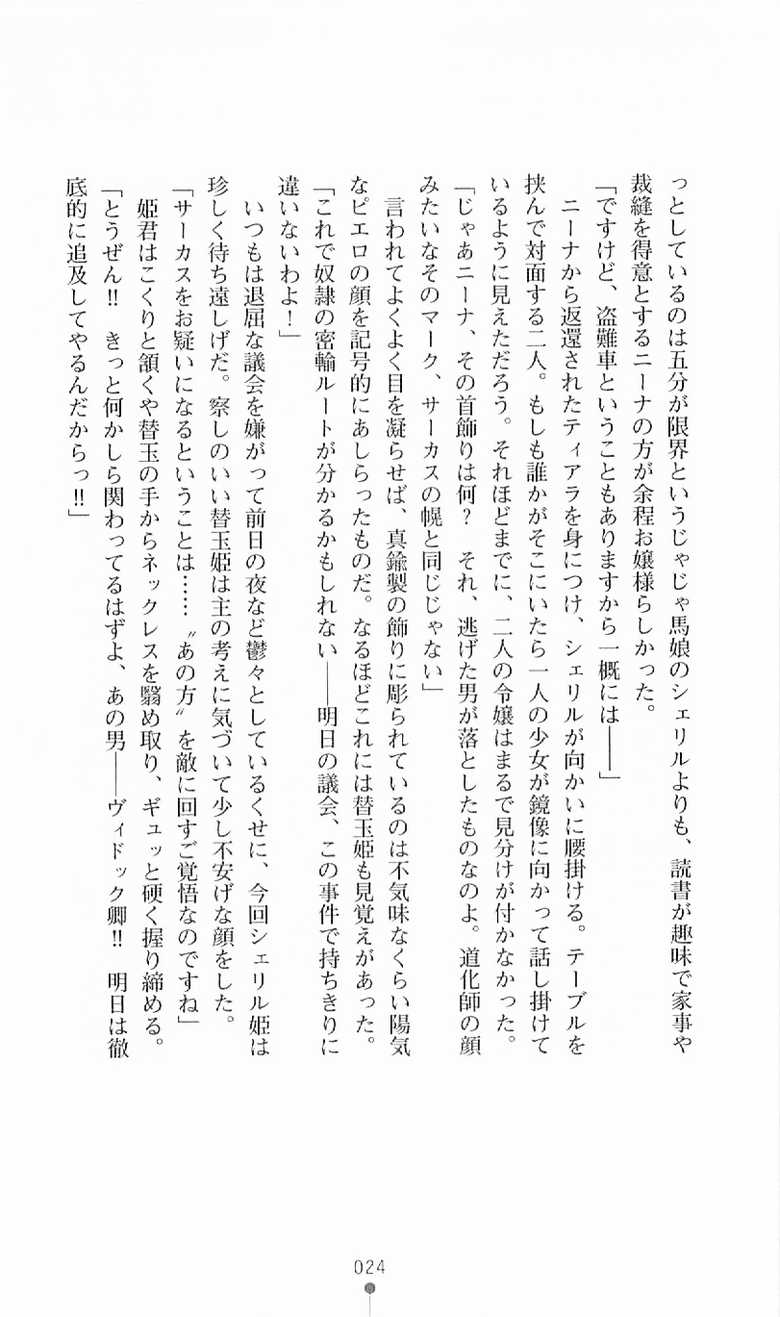 っとしているのは五分が限界というじゃじゃ馬娘のシェリルよりも、読書が趣味で家事や
裁縫を得意とするニーナの方が余程お嬢様らしかった。
「ですけど、盗難車ということもありますから一概には――」
　ニーナから返還されたティアラを身につけ、シェリルが向かいに腰掛ける。テーブルを
挟んで対面する二人。もしも誰かがそこにいたら一人の少女が鏡像に向かって話し掛けて
いるように見えただろう。それほどまでに、二人の令嬢はまるで見分けが付かなかった。
「じゃあニーナ、その首飾りは何？　それ、逃げた男が落としたものなのよ。道化師の顔
みたいなそのマーク、サーカスの幌と同じじゃない」
　言われてよくよく目を凝らせば、真鍮製の飾りに彫られているのは不気味なくらい陽気
なピエロの顔を記号的にあしらったものだ。なるほどこれには替玉姫も見覚えがあった。
「これで奴隷の密輸ルートが分かるかもしれない――明日の議会、この事件で持ちきりに
違いないわよ！」
　いつもは退屈な議会を嫌がって前日の夜など鬱々としているくせに、今回シェリル姫は
珍しく待ち遠しげだ。察しのいい替玉姫は主の考えに気づいて少し不安げな顔をした。
「サーカスをお疑いになるということは……〝あの方〟を敵に回すご覚悟なのですね」
　姫君はこくりと頷くや替玉の手からネックレスを翳め取り、ギュッと硬く握り締める。
「とうぜん!!　きっと何かしら関わってるはずよ、あの男――ヴィドック卿!!　明日は徹
底的に追及してやるんだからっ!!」
024